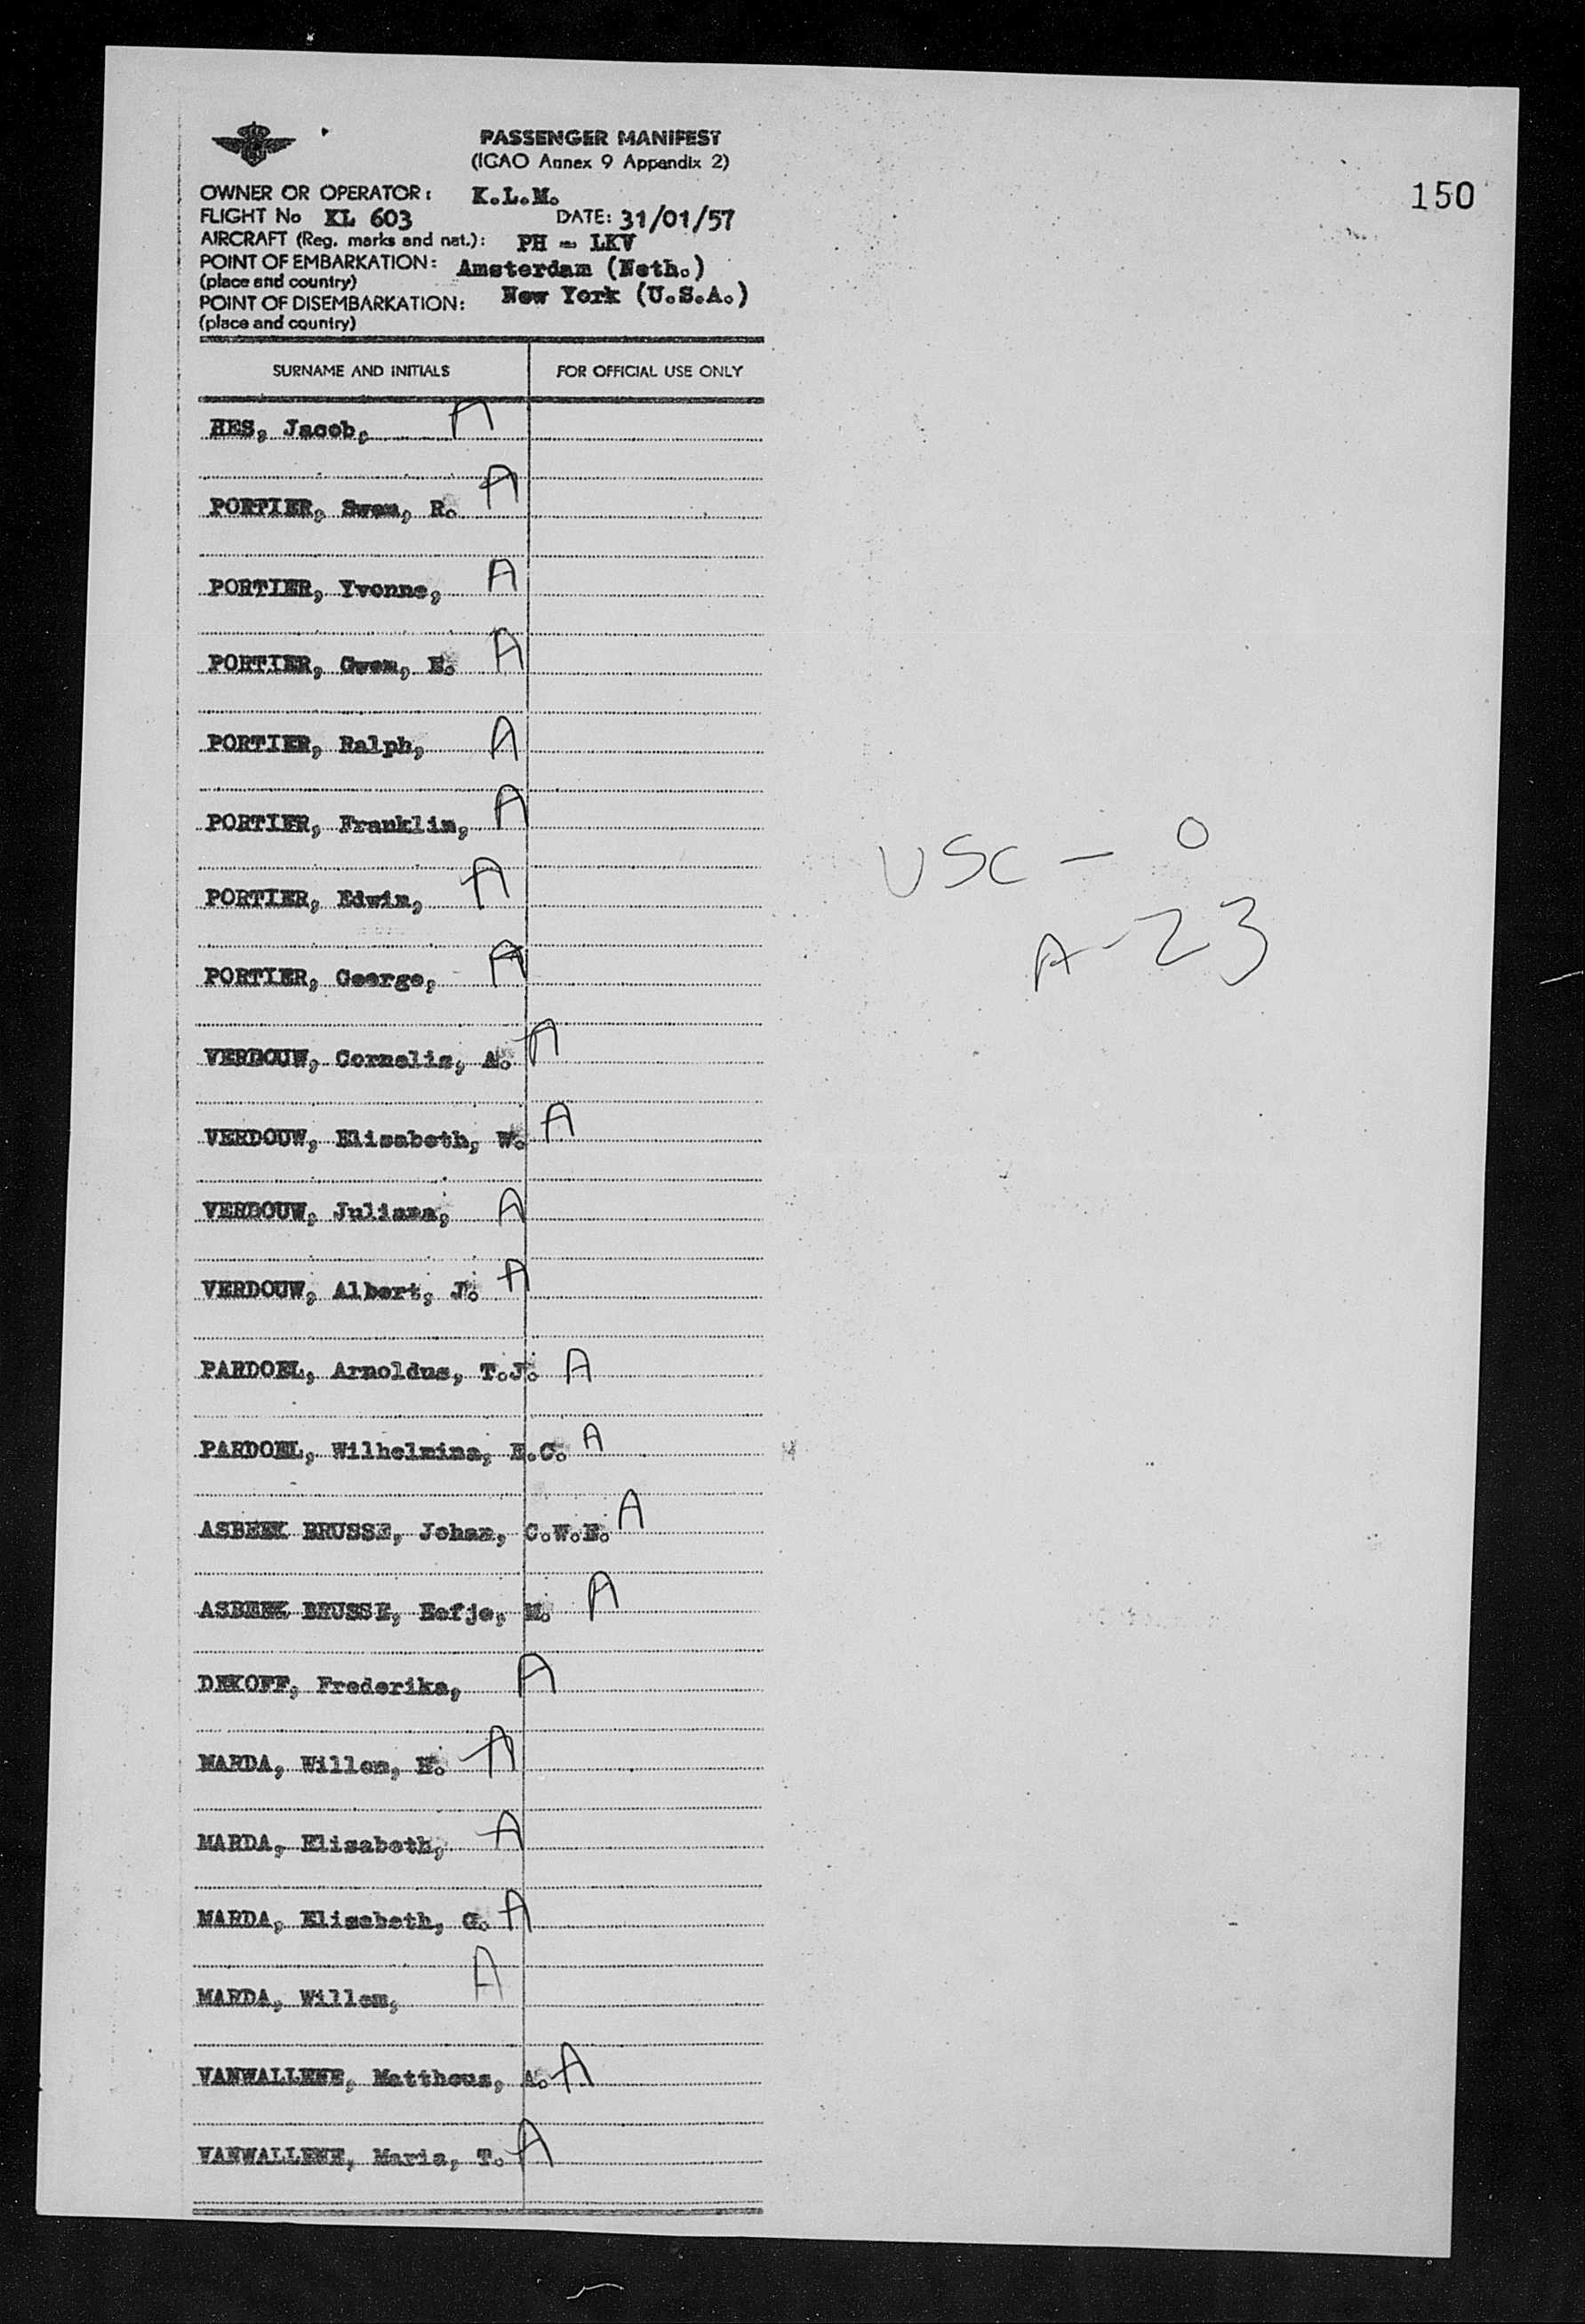 150
PASSENGER MANIFEST
(ICAO Annex 9 Appendix 2)
OWNER OR OPERATOR: K.L.M.
FLIGHT No KL 603 DATE: 31/01/57
AIRCRAFT (Reg. marks and nat.): PH - LKV
POINT OF EMBARKATION: Amsterdam (Neth.)
(place and country)
POINT OF DISEMBARKATION: New York (U.S.A.)
(place and country)
SURNAME AND INITIALS FOR OFFICIAL USE ONLY
HES, Jacob, A
PORTIER, Swen, R. A
PORTIER, Yvonne, A
PORTIER, Gwen, E. A
PORTIER, Ralph, A
PORTIER, Franklin, A
USC - 0
PORTIER, Edwin, A
A-23
PORTIER, George, A
VERDOUW, Cornelis, A. A
VERDOUW, Elisabeth, W. A
VERDOUW, Juliana, A
VERDOUW, Albert, J. A
PARDOEL, Arnoldus, T.J. A
PARDOEL, Wilhelmina, E.C. A
ASBEEK BRUSSE, Johan, C.W.E. A
ASBEEK BRUSSE, Eefje, M. A
DEKOFF, Frederika, A
MARDA, Willem, H. A
MARDA, Elisabeth, A
MARDA, Elisabeth, G. A
MARDA, Willem, A
VANWALLENE, Mattheus, A. A
VANWALLENE, Maria, T. A